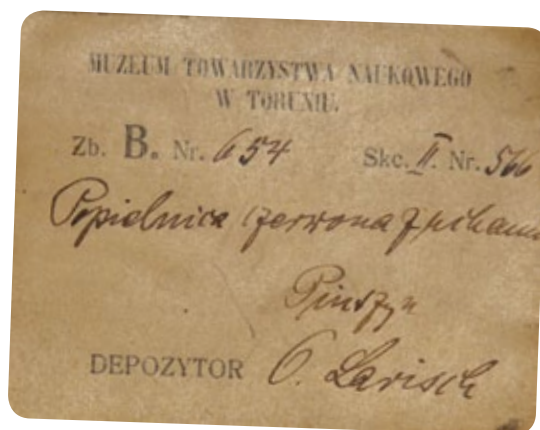 MUZEUM TOWARZYSTWA NAUKOWEGO
W TORUNIU.
Zb. B. Nr. 654 Skc. II. Nr. 566
Popielnica czerwona z uchami
DEPOZYTOR O. Larisch